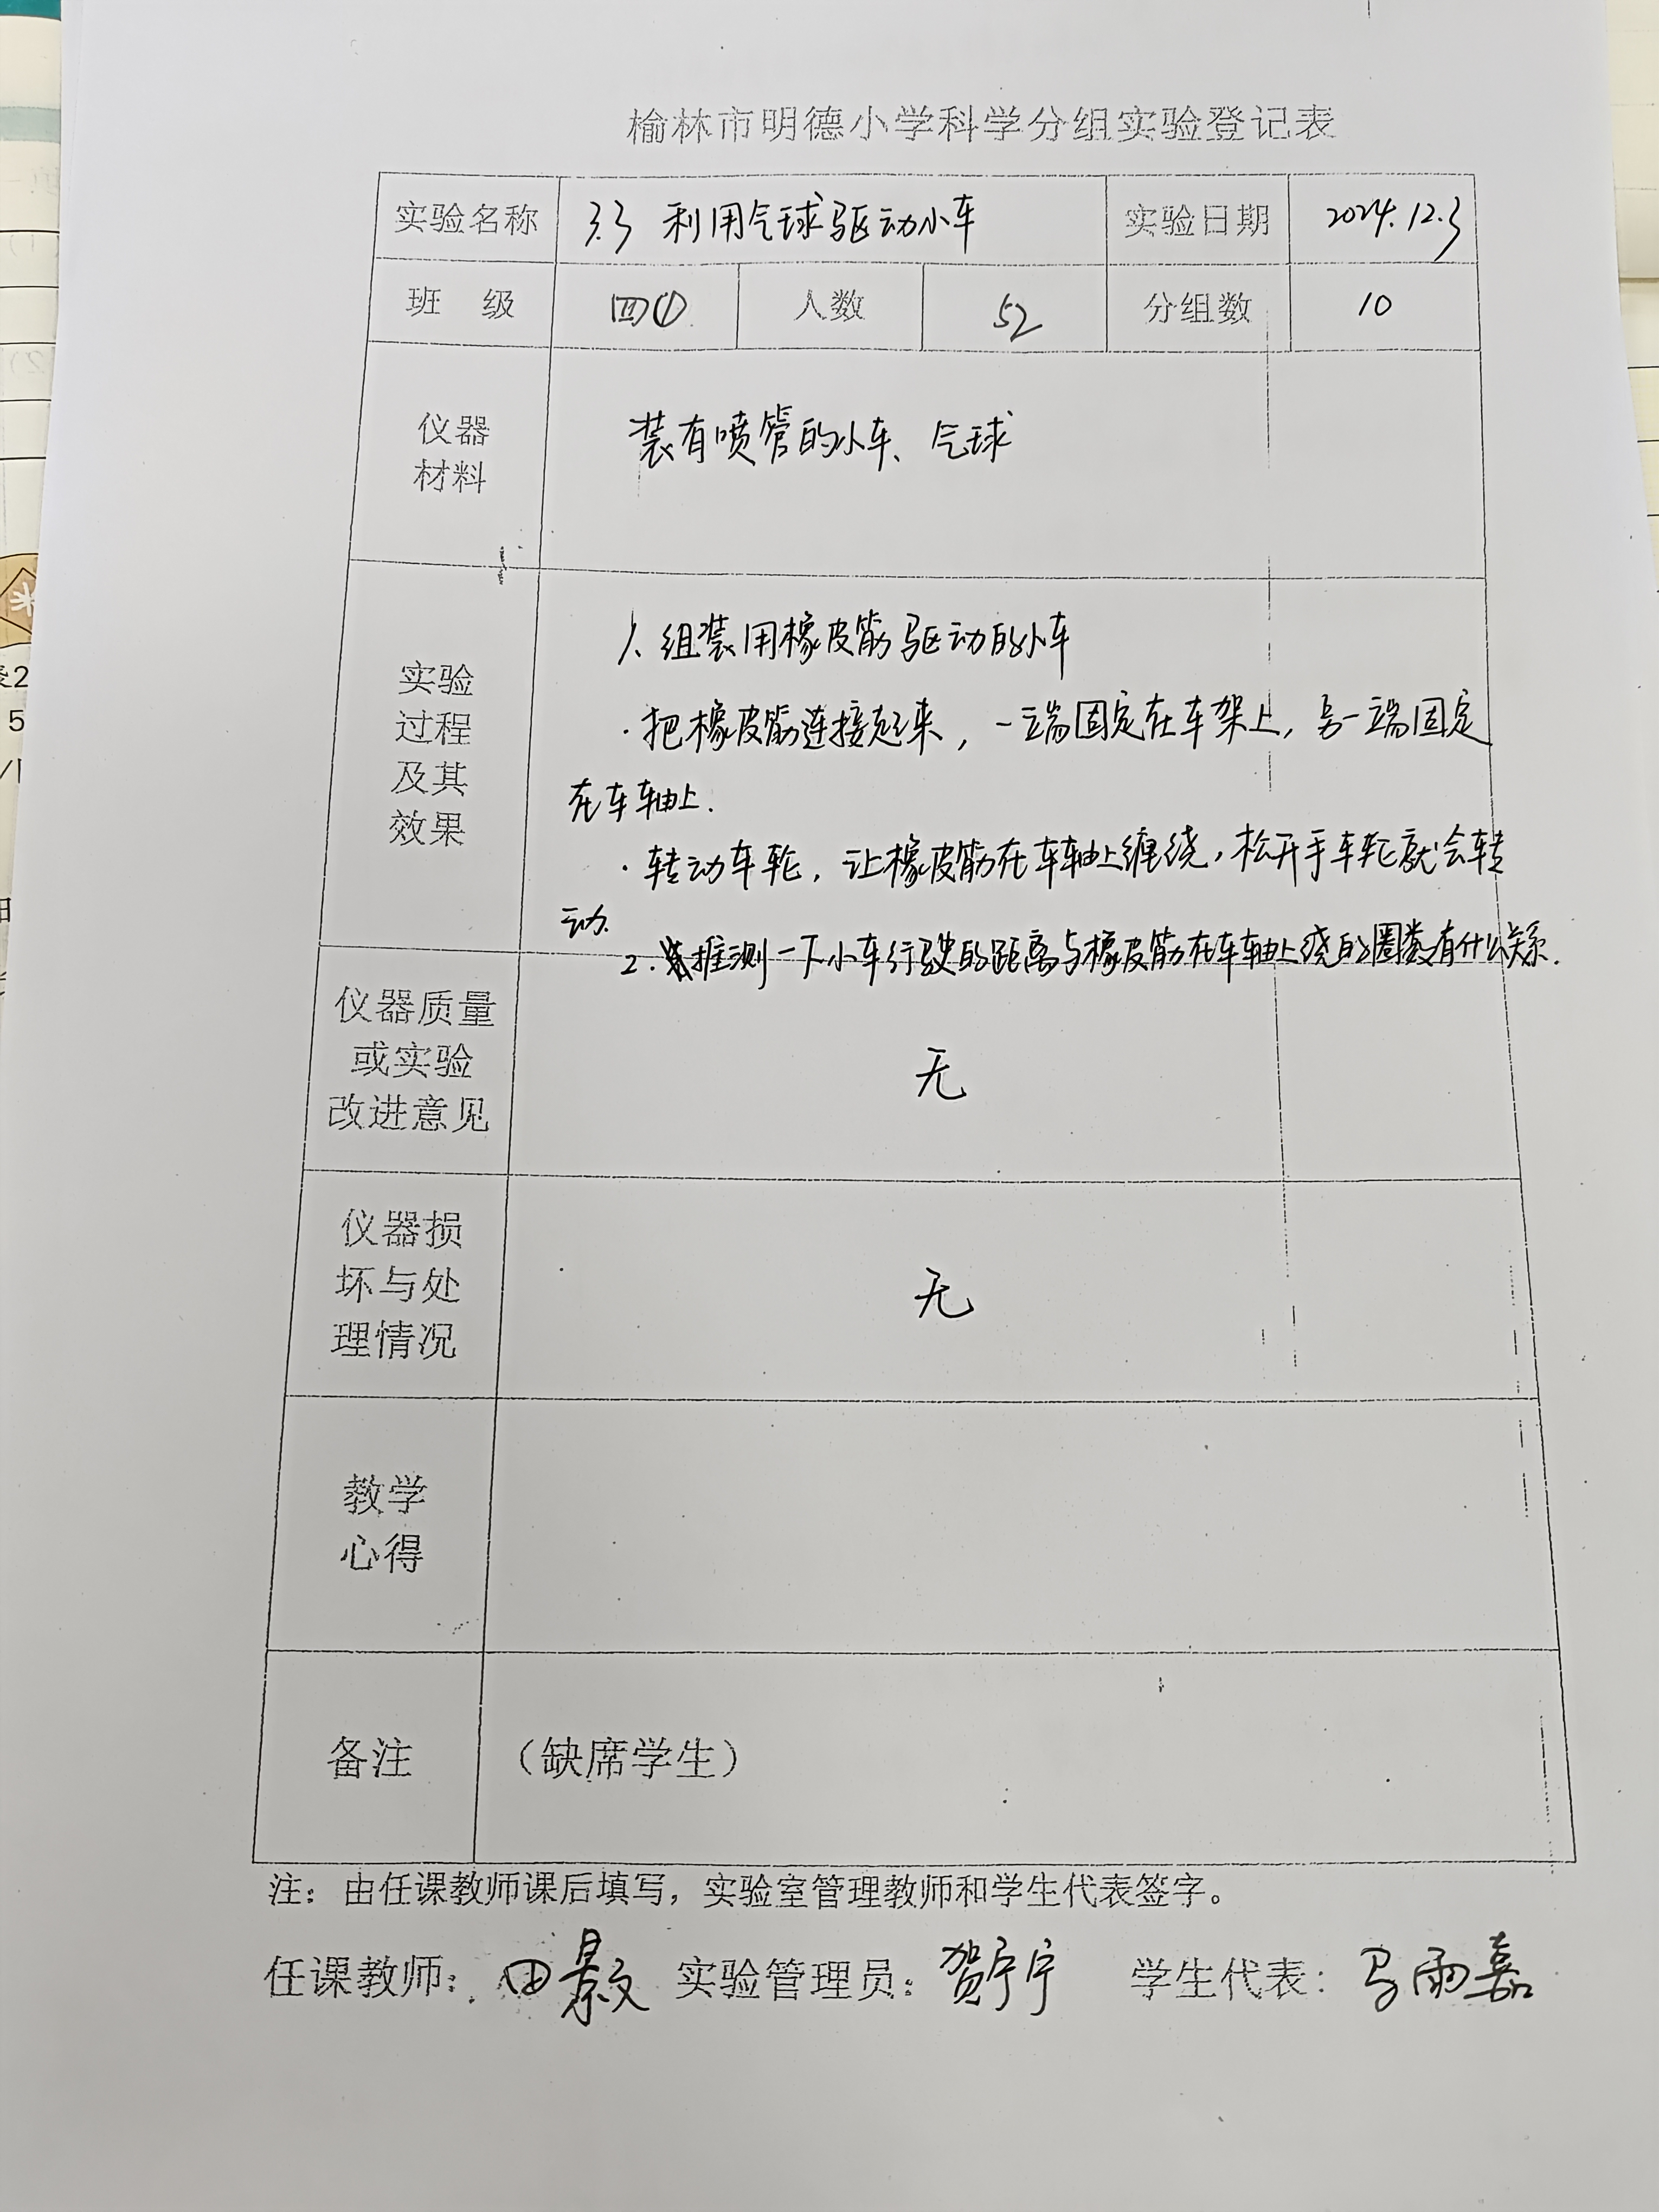 榆林市明德小学科学分组实验登记表
实验名称 3.3 利用气球驱动小车 实验日期 2024.12.3
班 级 四① 人数 52 分组数 10
仪器
材料
装有喷管的小车、气球
实验
过程
及其
效果
1. 组装用橡皮筋驱动的小车
·把橡皮筋连接起来，一端固定在车架上，另一端固定
在车轴上.
·转动车轮，让橡皮筋在车轴上缠绕，松开手车轮就会转
动.
2. 推测一下小车行驶的距离与橡皮筋在车轴上绕的圈数有什么关系.
仪器质量
或实验
改进意见
无
仪器损
坏与处
理情况
无
教学
心得
备注 （缺席学生）
注：由任课教师课后填写，实验室管理教师和学生代表签字。
任课教师： 田 实验管理员：贺宁宁 学生代表：马雨嘉
表2
5